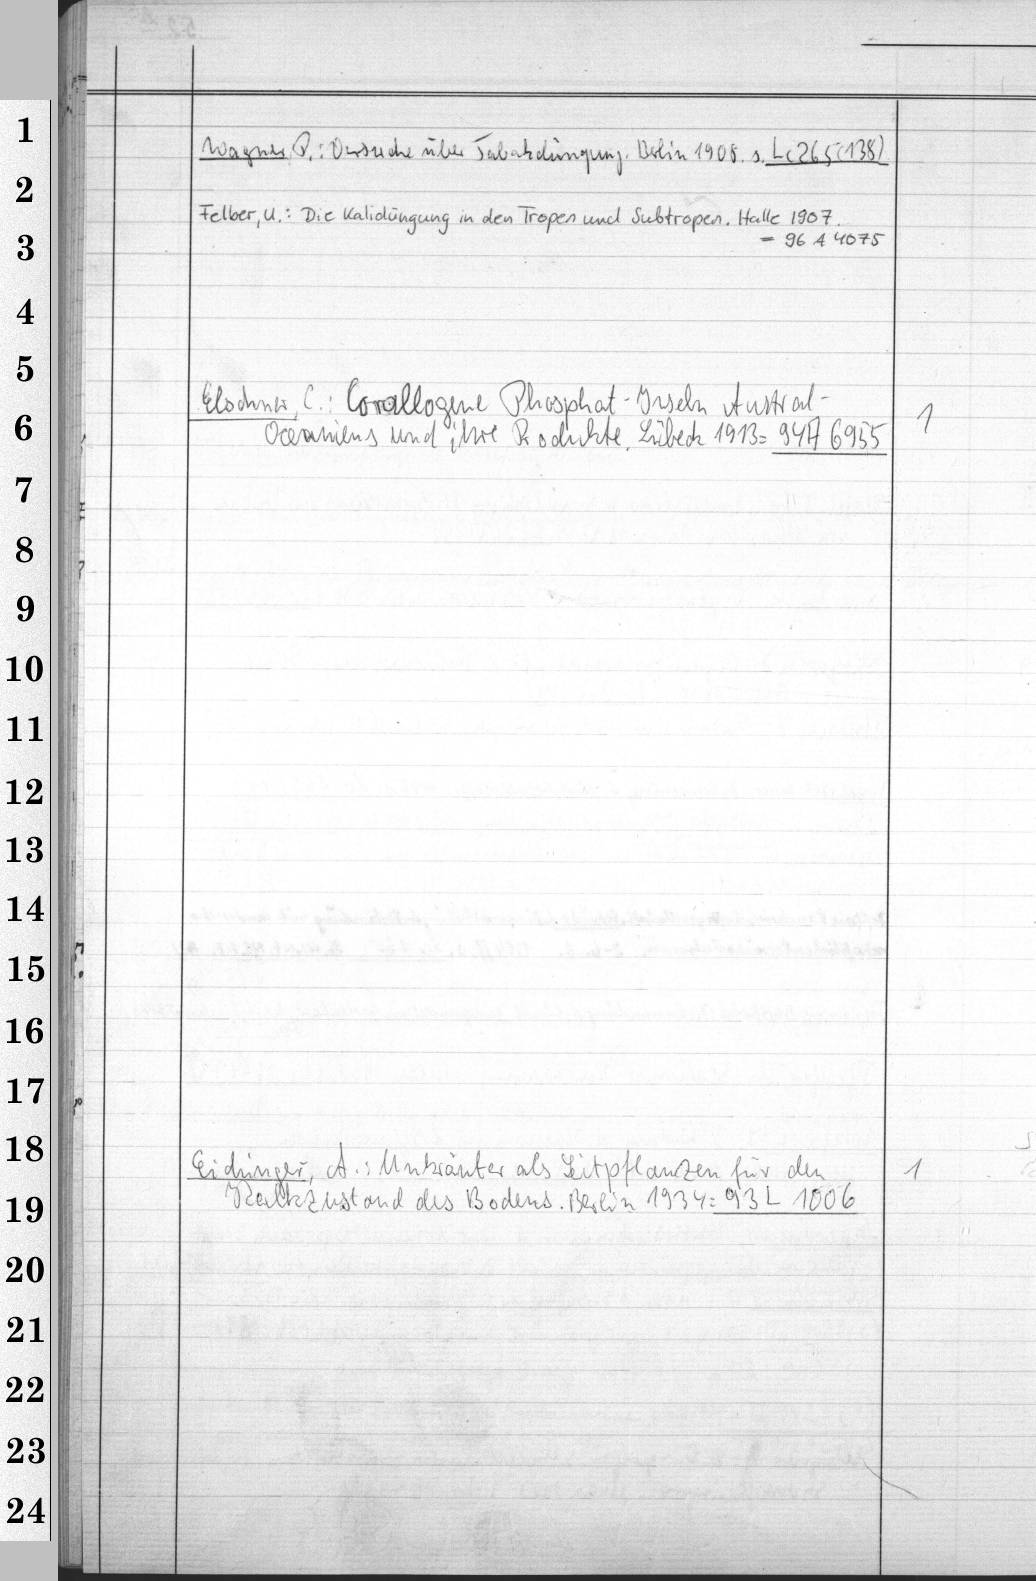 1
2
3
4
5
6
7
8
9
10
11
12
13
14
15
16
17
18
19
20
21
22
23
24
Wagner, P.: Versuche über Tabakdüngung. Berlin 1908. s. Lc 265(138)
Felber, U.: Die Kalidüngung in den Tropen und Subtropen. Halle 1907.
= 96 A 4075
Elschner, C.: Corallogene Phosphat-Inseln Austral-
Oceaniens und ihre Produkte. Lübeck 1913= 94A 6955
1
Eichinger, A.: Unkräuter als Leitpflanzen für den
Kalkzustand des Bodens. Berlin 1934= 93 L 1006
1